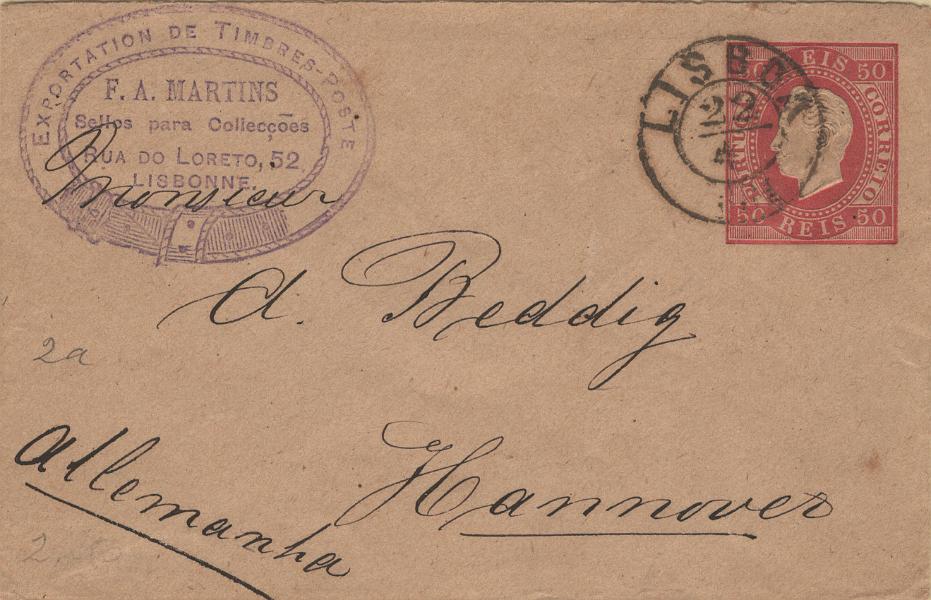 EXPORTATION DE TIMBRES-POSTE
F. A. MARTINS
Sellos para Collecções
RUA DO LORETO, 52
LISBONNE.
LISBOA
22
50 REIS 50
CORREIO
50 REIS 50
Monsieur
A. Beddig
2a
Hannover
Allemanha